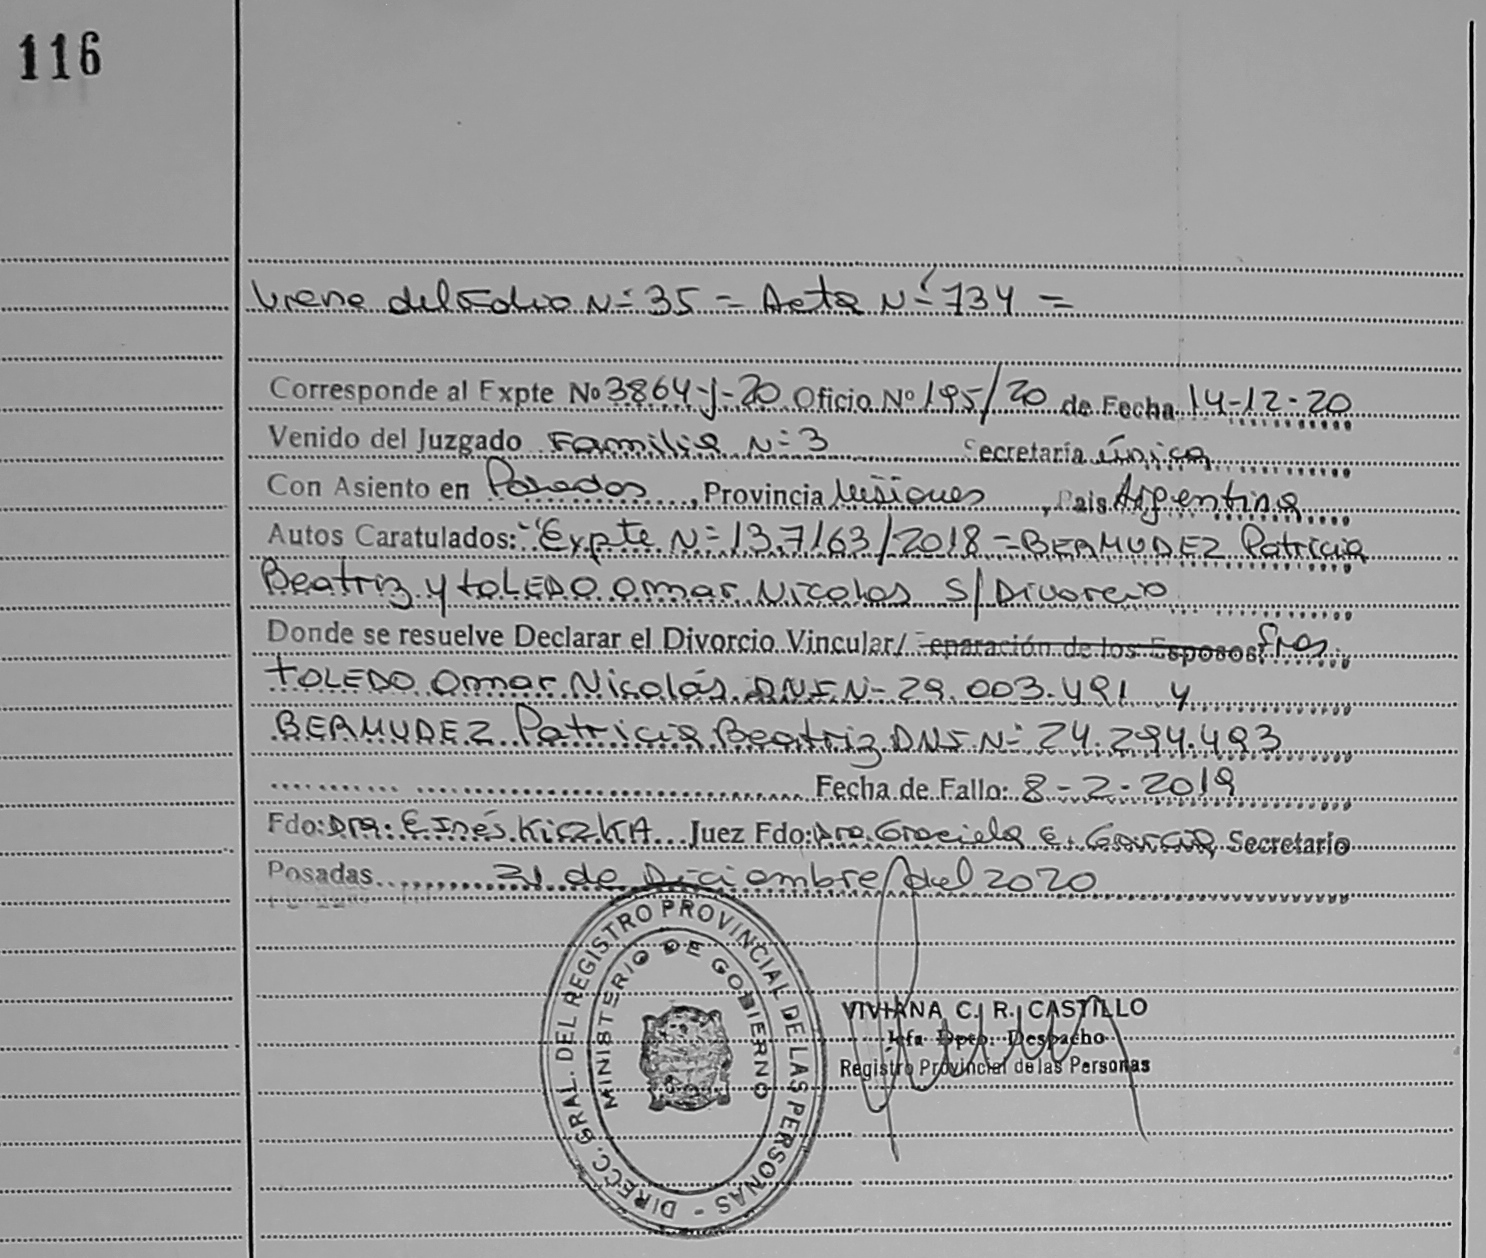 116
Viene del Folio Nº 35 = Acta Nº 734 =
Corresponde al Expte Nº 3864-J-20 Oficio Nº 195/20 de Fecha 14-12-20
Venido del Juzgado Familia Nº 3 Secretaría Única
Con Asiento en Posadas, Provincia Misiones, Pais Argentina
Autos Caratulados: "Expte Nº 137163/2018 = BERMUDEZ Patricia
Beatriz y TOLEDO Omar Nicolas S/Divorcio
Donde se resuelve Declarar el Divorcio Vincular/ Separación de los Esposos
TOLEDO Omar Nicolás DNI Nº 29.003.491 y
BERMUDEZ Patricia Beatriz DNI Nº 24.294.493
Fecha de Fallo: 8-2-2019
Fdo: Dra: E Inés KiczKA Juez Fdo: Dra. Graciela E. García Secretario
Posadas 21 de Diciembre del 2020
DIRECC. GRAL. DEL REGISTRO PROVINCIAL DE LAS PERSONAS -
MINISTERIO DE GOBIERNO
VIVIANA C. R. CASTILLO
Jefa Dpto. Despacho
Registro Provincial de las Personas